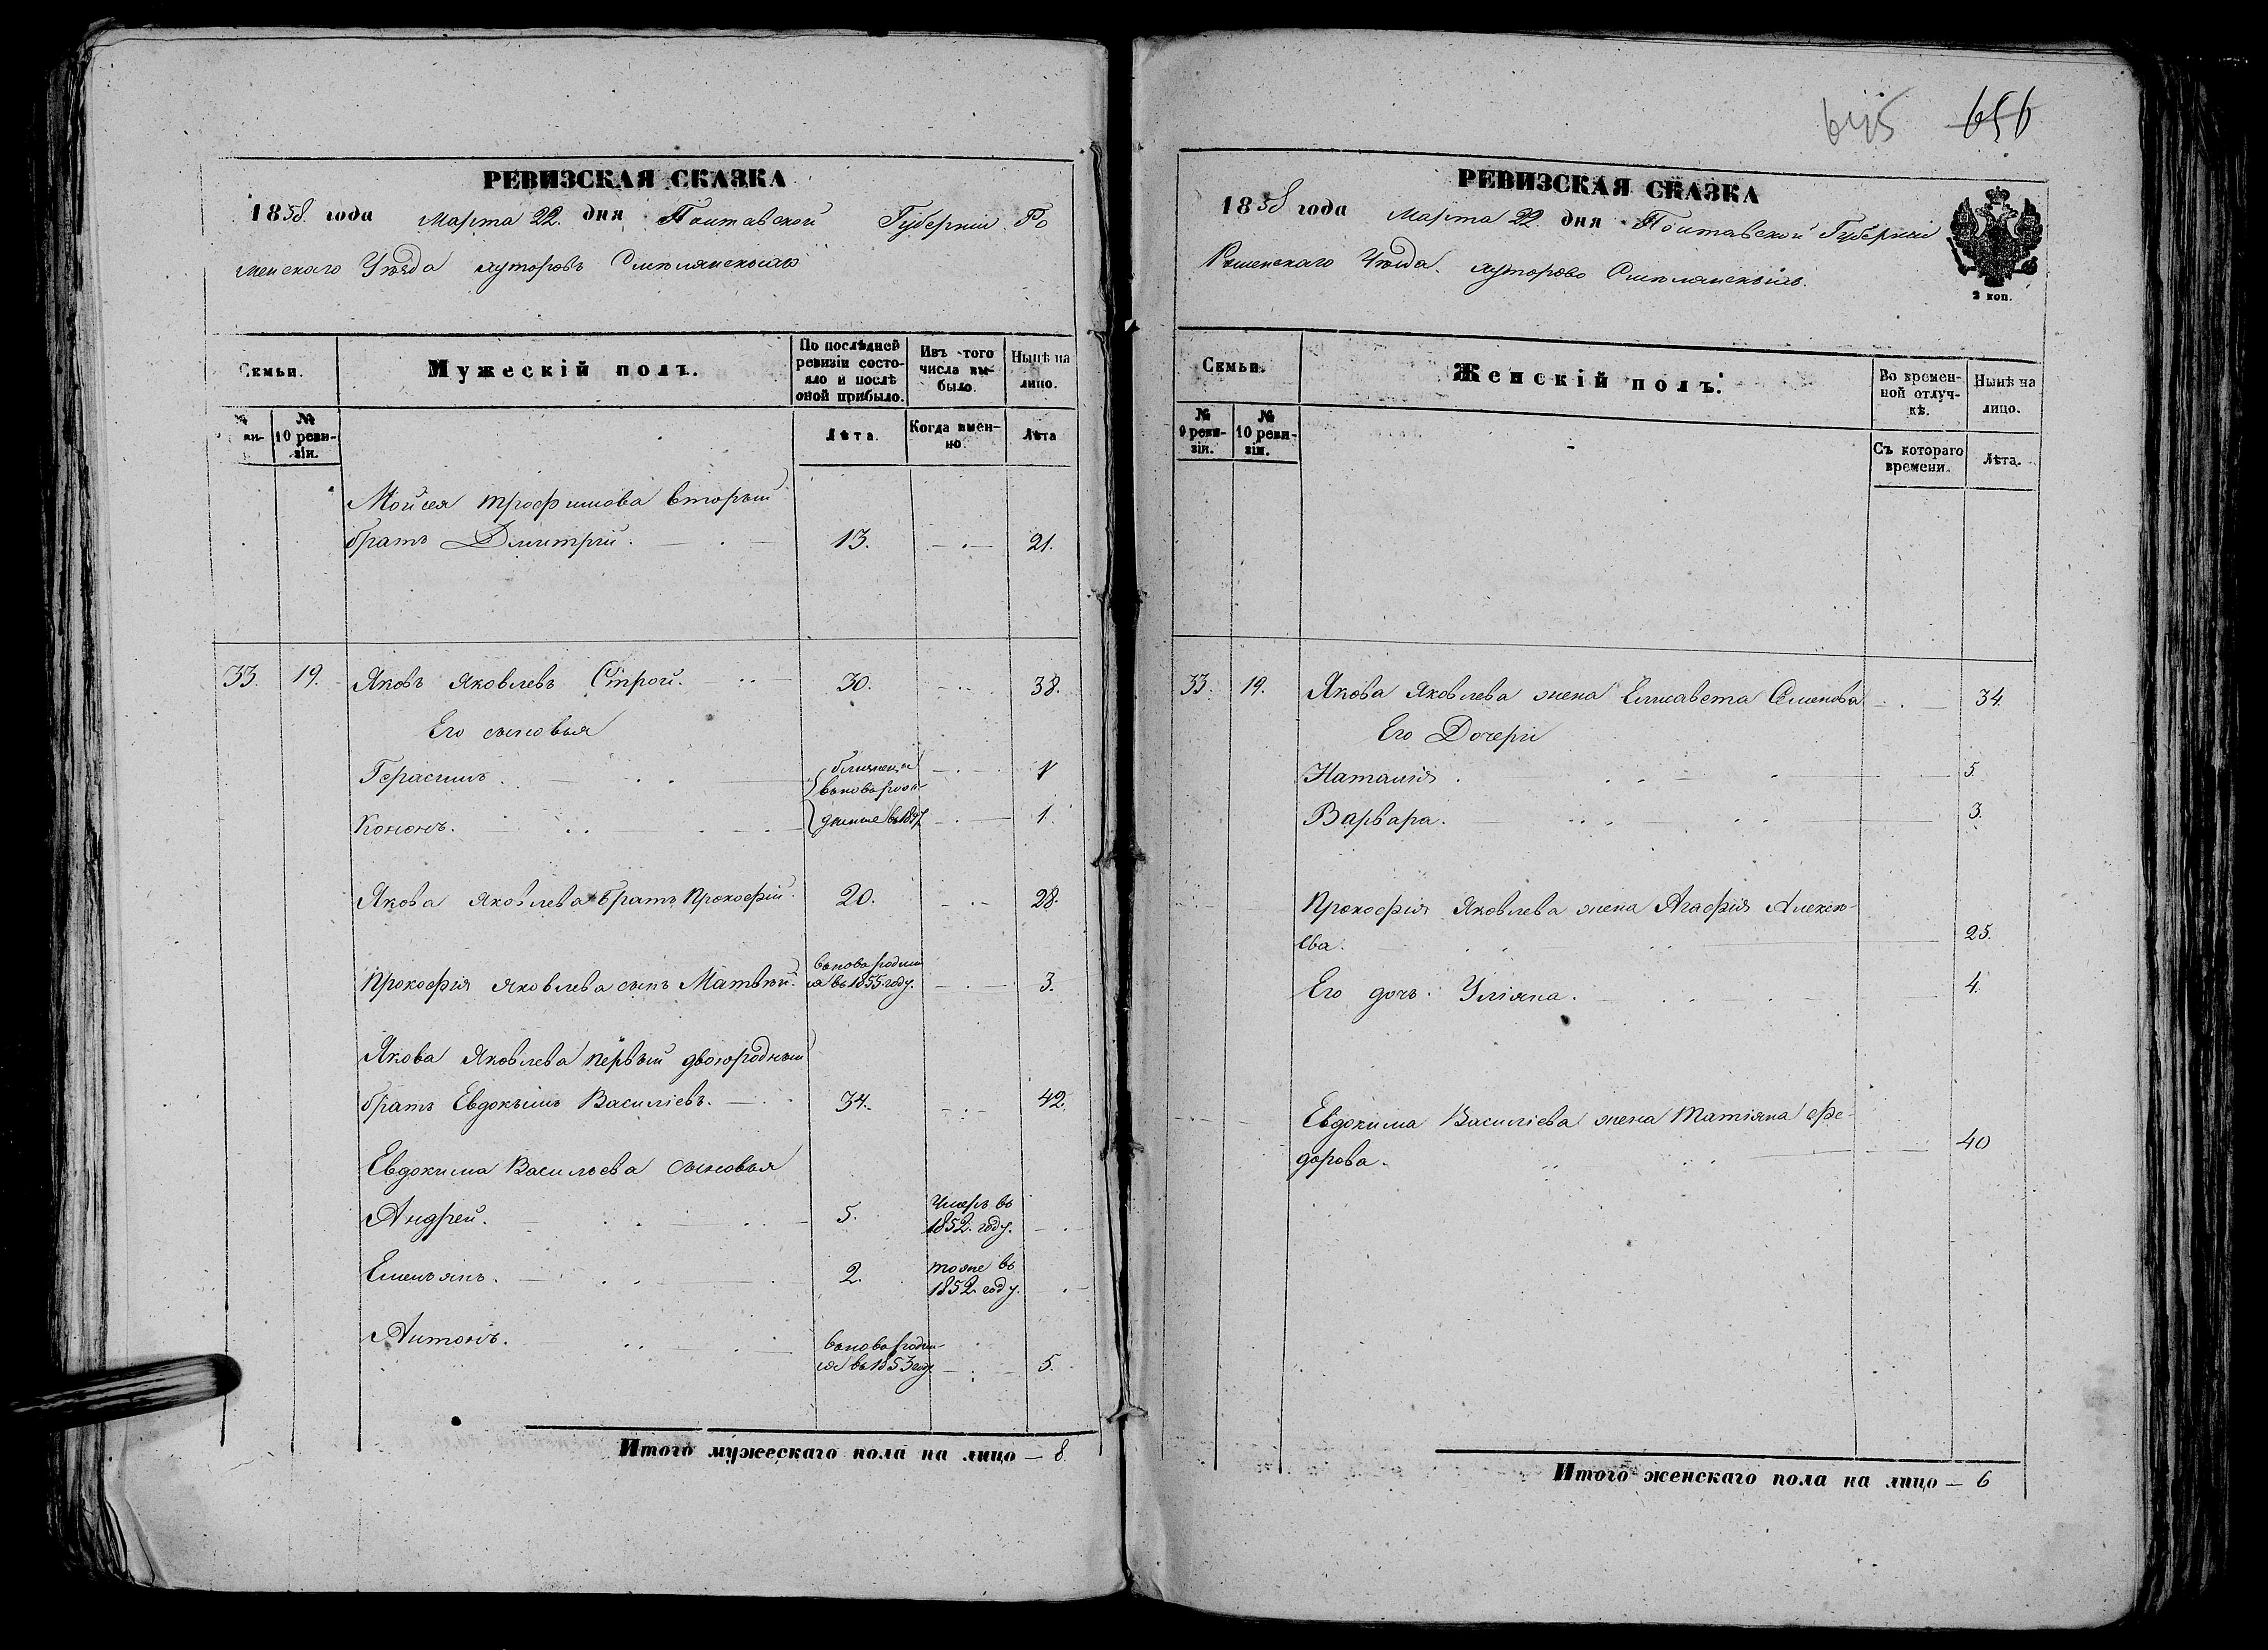 РЕВИЗСКАЯ СКАЗКА
1858 года Марта 22. дня Полтавской Губерніи Ро
менскаго Уѣзда хуторовъ
Семьи.
Мужескій полъ.
По послѣдней ревизіи состо-
яло и послѣ оной прибыло.
Изъ того числа вы-
было.
Нынѣ на лицо.
№
№ 10 реви-
зіи.
Лѣта.
Когда имен-
но.
Лѣта
Мойсея Трофимова вторый
братъ Димитрій. 13. 21.
33. 19. Яковъ Яковлевъ Строй. 30. 38.
Его сыновья
Герасимъ. близнецы 1
вновь рож-
Кононъ. денные въ 1857 1.
Якова Яковлева братъ Прокофій 20. 28.
Прокофія Яковлева сынъ Матвѣй. вновь родил
ся въ 1855 году. 3.
Якова Яковлева первый двоюродный
братъ Евдокимъ Василіевъ. 34. 42.
Евдокима Васильева сыновья
Андрей. 5. Умеръ въ
1852 году.
Емельянъ. 2. тоже въ
1852 году.
Антонъ. вновь родил-
ся въ 1853 году. 5.
Итого мужескаго пола на лицо — 8.
645 656
РЕВИЗСКАЯ СКАЗКА
1858 года Марта 22. дня Полтавской Губерніи
Роменскаго Уѣзда. хуторовъ
2 коп.
Семьи.
Женскій полъ.
Во времен-
ной отлуч-
кѣ.
Нынѣ на лицо.
№ 9 реви-
зіи.
№ 10 реви-
зіи.
Съ котораго времени.
Лѣта.
33. 19. Якова Яковлева жена Елисавета Семенова 34.
Его Дочери
Наталія. 5.
Варвара. 3.
Прокофія Яковлева жена Агафія Алексѣ-
ева. 25.
Его дочь Уліяна. 4.
Евдокима Василіева жена Татіяна Фе-
дорова. 40
Итого женскаго пола на лицо — 6